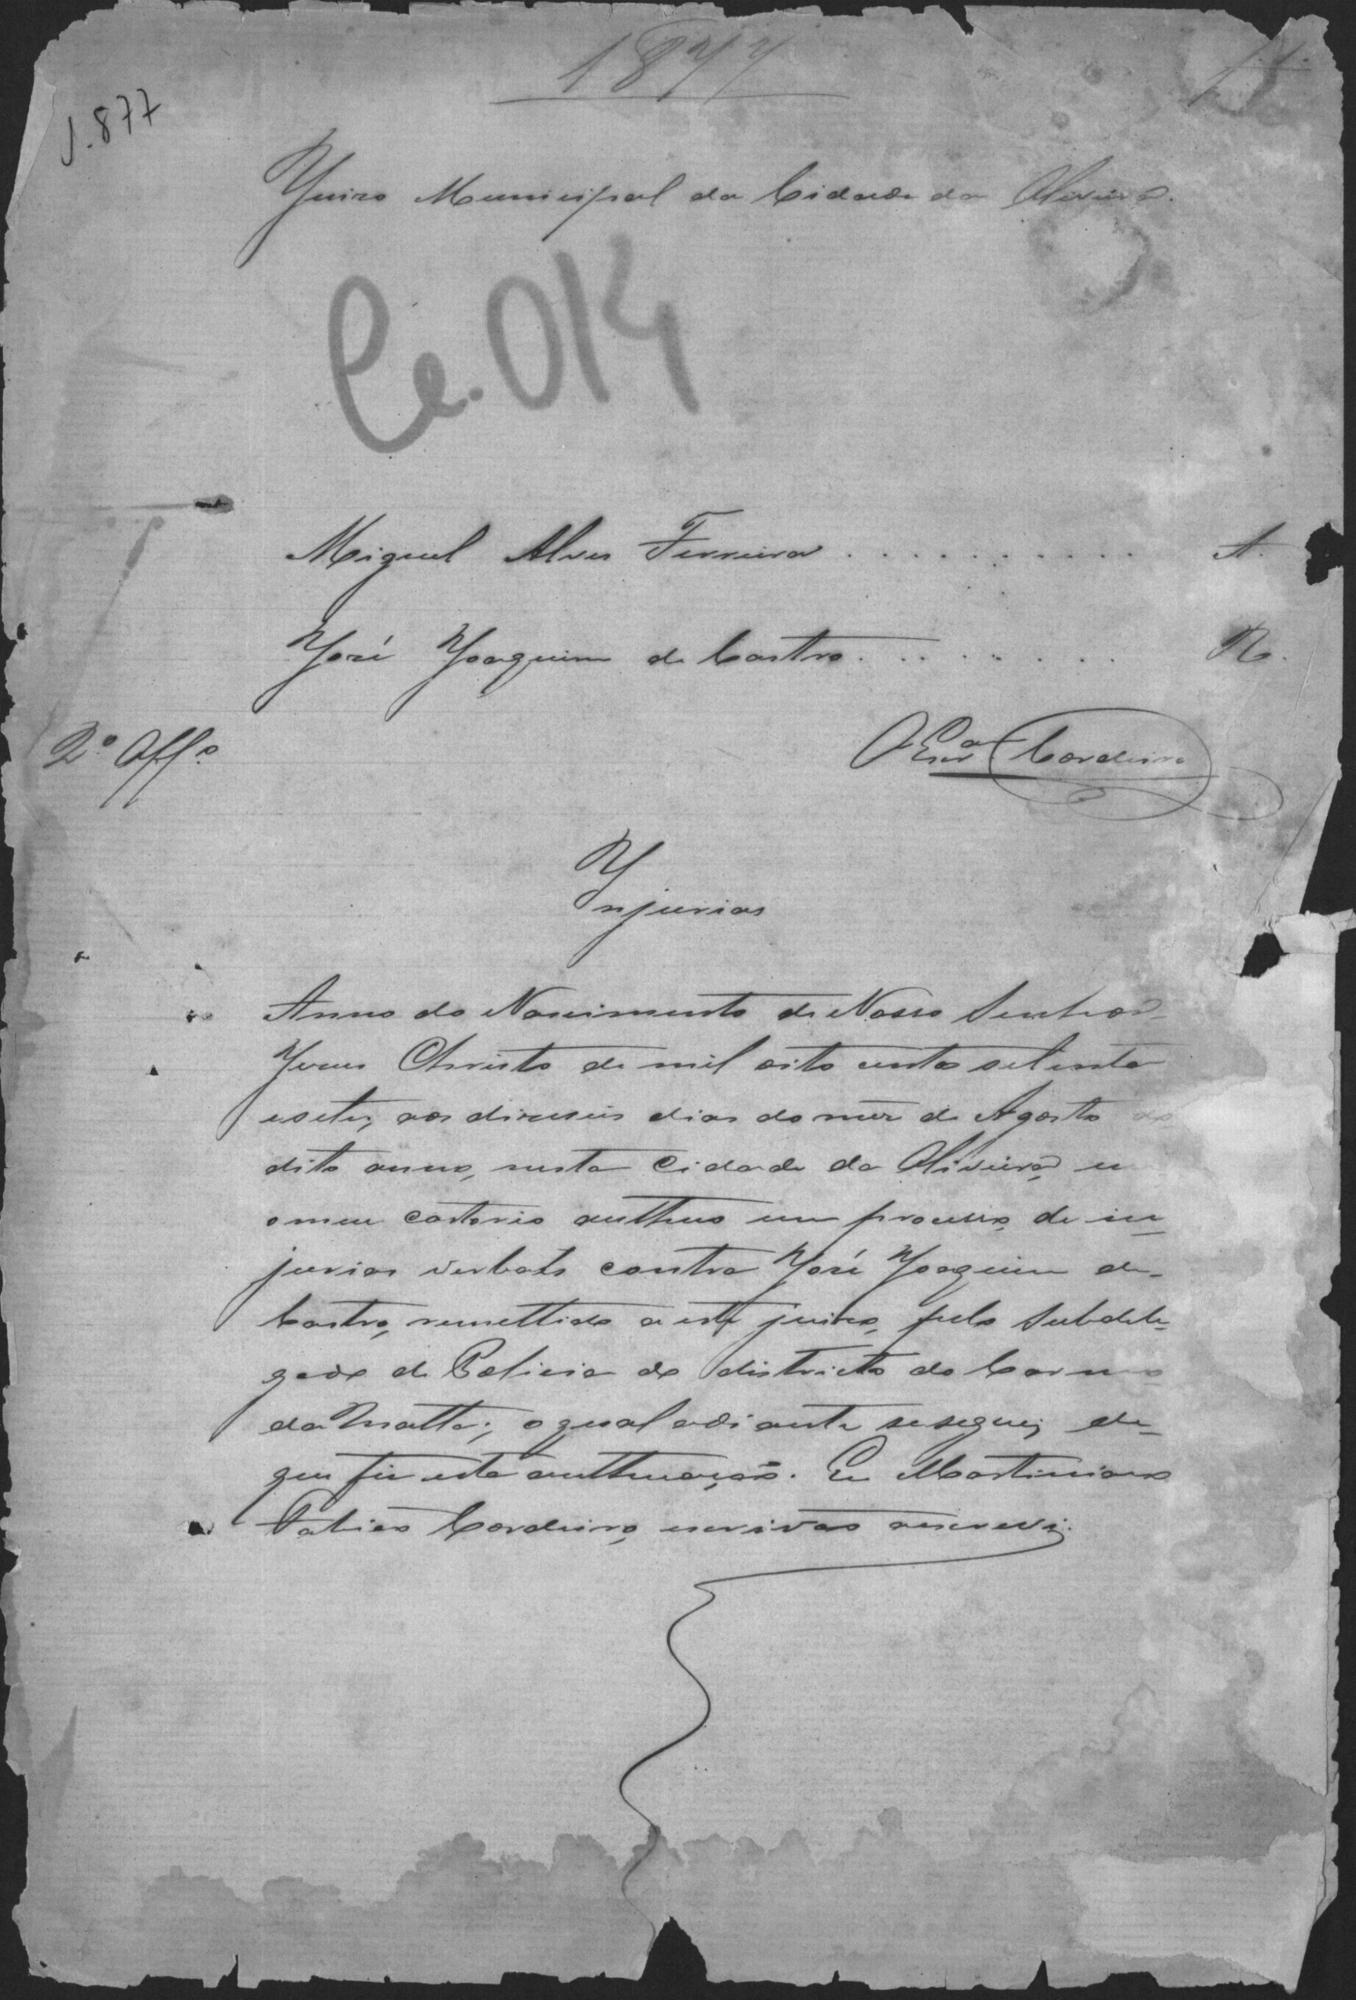 1877
J. 877
Juizo Municipal da Cidade da Oliveira.
Ce. 014
Miguel Alves Ferreira . . . . . . . . . . A.
José Joaquim de Castro . . . . . . . . R.
2º Offº
O Escam Cordeiro
Injurias
Anno do Nascimento de Nosso Senhor
Jesus Christo de mil oito centos setenta
e sete, aos dieseseis dias do mez de Agosto do
dito anno, nesta Cidade da Oliveira, em
o meu cartorio authuo um processo de in-
jurias verbaes contra José Joaquim de
Castro, remettido a este juizo, pelo Subdele-
gado de Policia do districto do Carmo
da Matta; o qual adiante se segue; do
que fiz esta authuação. Eu Martiniano
Cordeiro, escrivão o escrevi.